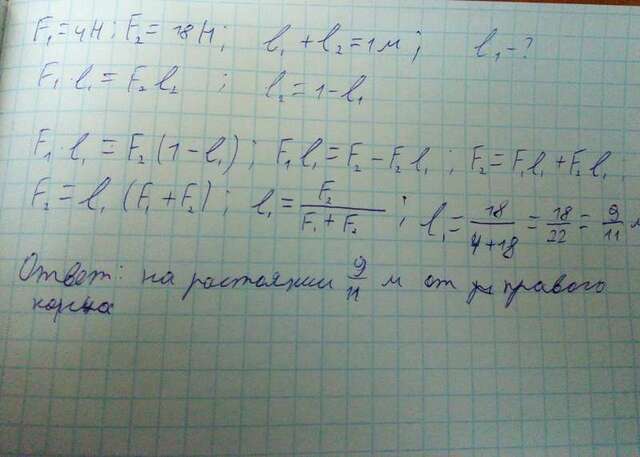 F₁=4Н; F₂=18Н; l₁+l₂=1м; l₁-?
F₁·l₁=F₂l₂; l₂=1-l₁
F₁·l₁=F₂(1-l₁); F₁l₁=F₂-F₂l₁; F₂=F₁l₁+F₂l₁;
F₂=l₁(F₁+F₂); l₁=F₂/(F₁+F₂); l₁=18/(4+18)=18/22=9/11 м
Ответ: на растоянии 9/11 м от правого
конца